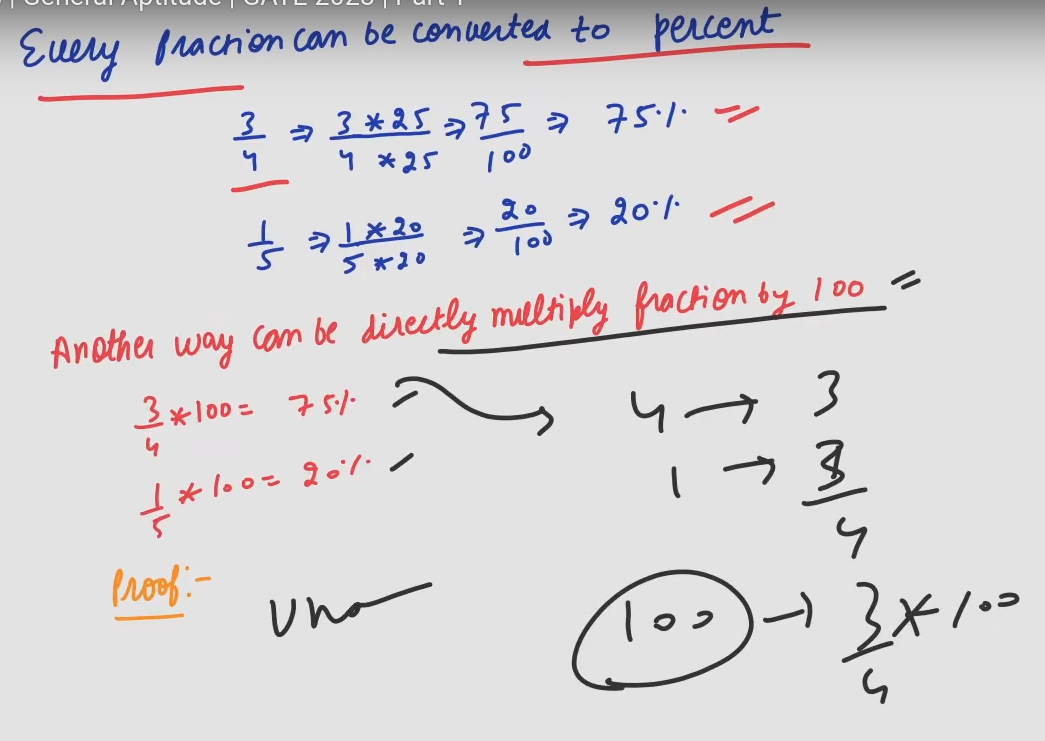 | General Aptitude | GATE 2023 | Part 1
Every fraction can be converted to percent
3/4 ⇒ 3*25/4*25 ⇒ 75/100 ⇒ 75%
1/5 ⇒ 1*20/5*20 ⇒ 20/100 ⇒ 20%
Another way can be directly multiply fraction by 100
3/4 * 100 = 75%
4 → 3
1/5 * 100 = 20%
1 → 3/4
Proof:-
100 → 3/4 * 100